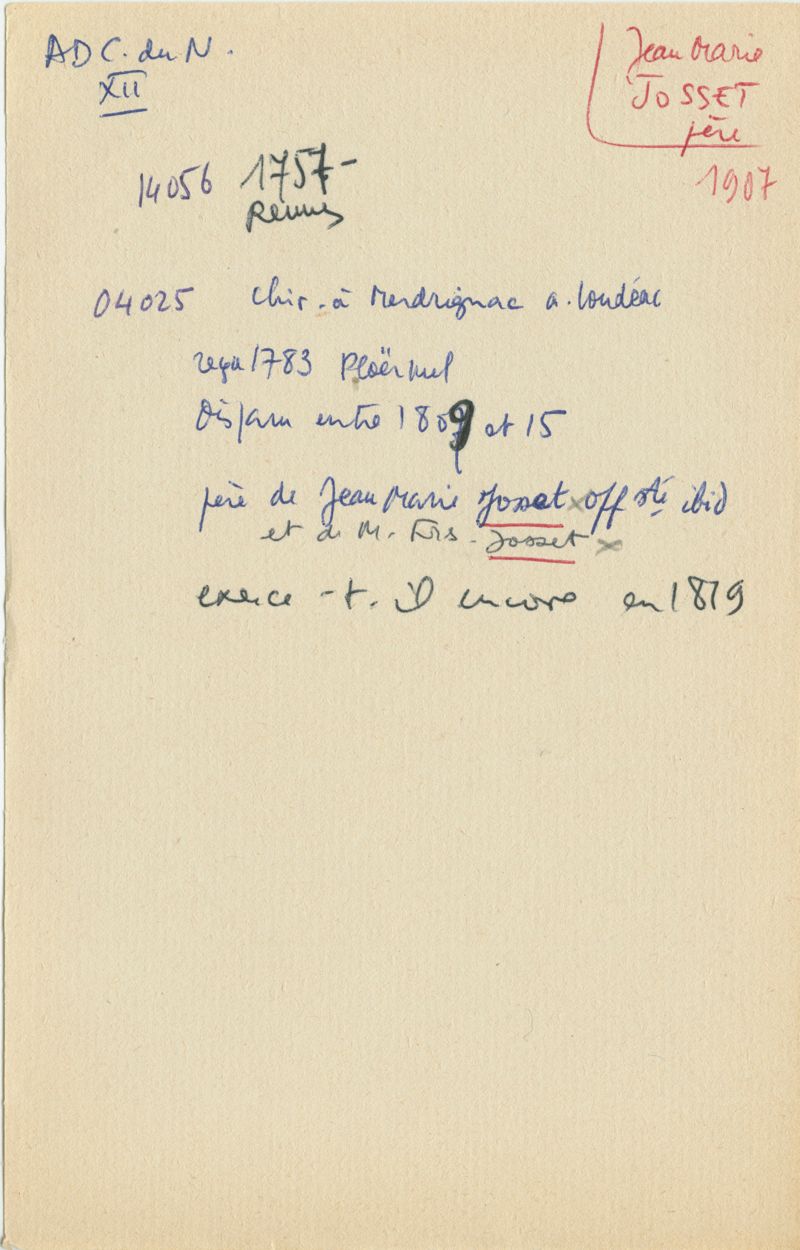 ADC. du N.
XII
Jean Marie
JOSSET
père
1907
14056 1757-
Rennes
04025 chir. à Merdrignac a. Loudéac
reçu 1783 Ploërmel
Disparu entre 1809 et 15
père de Jean Marie Josset x off sté ibid
et de M. Frs. Josset x
exerce-t-il encore en 1819